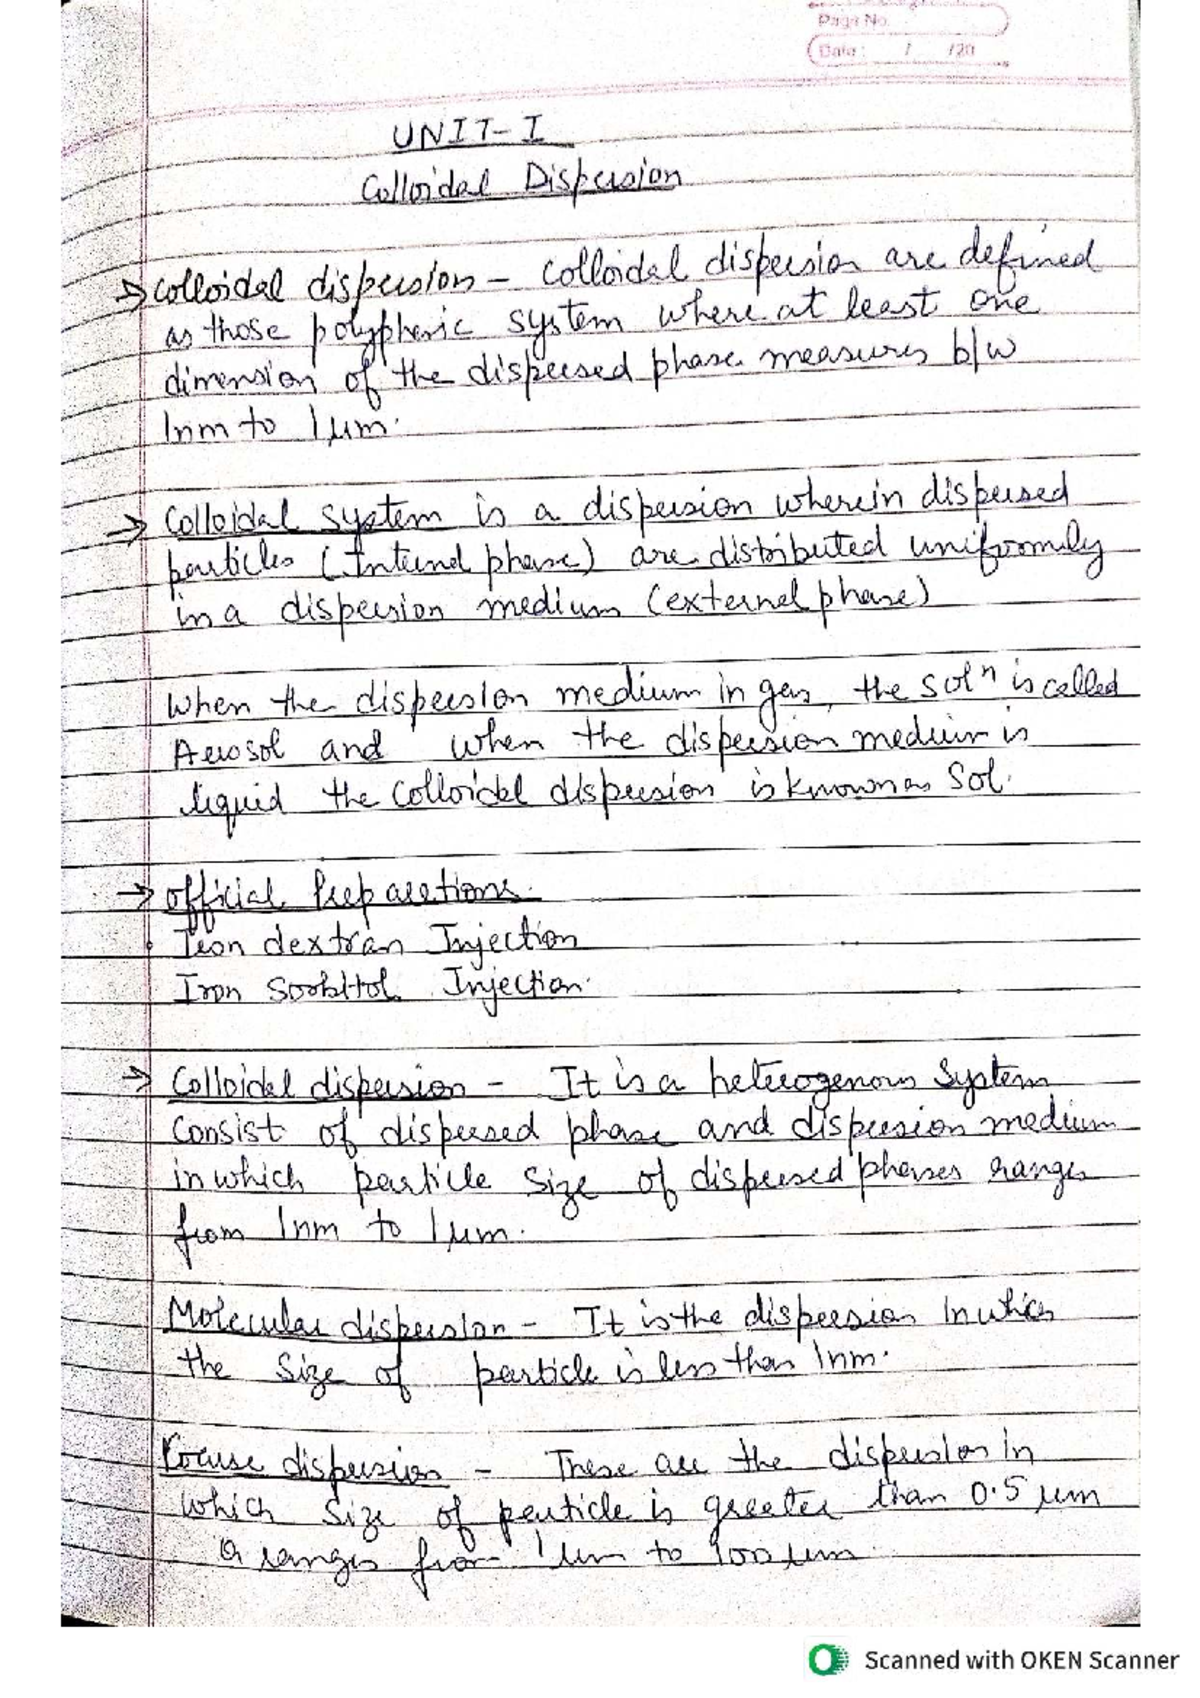 Page No.
Date : / /20
UNIT-I
Colloidal Dispersion
→ Colloidal dispersion - Colloidal dispersion are defined
as those polyphasic system where at least one
dimension of the dispersed phase measures b/w
1nm to 1µm.
→ Colloidal system is a dispersion wherein dispersed
particles (Internal phase) are distributed uniformily
in a dispersion medium (external phase)
When the dispersion medium in gas, the solⁿ is called
Aerosol and when the dispersion medium is
liquid the colloidal dispersion is known as Sol.
→ official Preparations.
Iron dextran Injection
Iron Sorbitol Injection.
→ Colloidal dispersion - It is a heterogenous System
Consist of dispersed phase and dispersion medium
in which particle size of dispersed phases ranges
from 1nm to 1µm.
Molecular dispersion - It is the dispersion in which
the size of particle is less than 1nm.
dispersion - These are the dispersion in
which size of particle is greater than 0.5 µm
ranges from 1µm to 100µm.
Scanned with OKEN Scanner